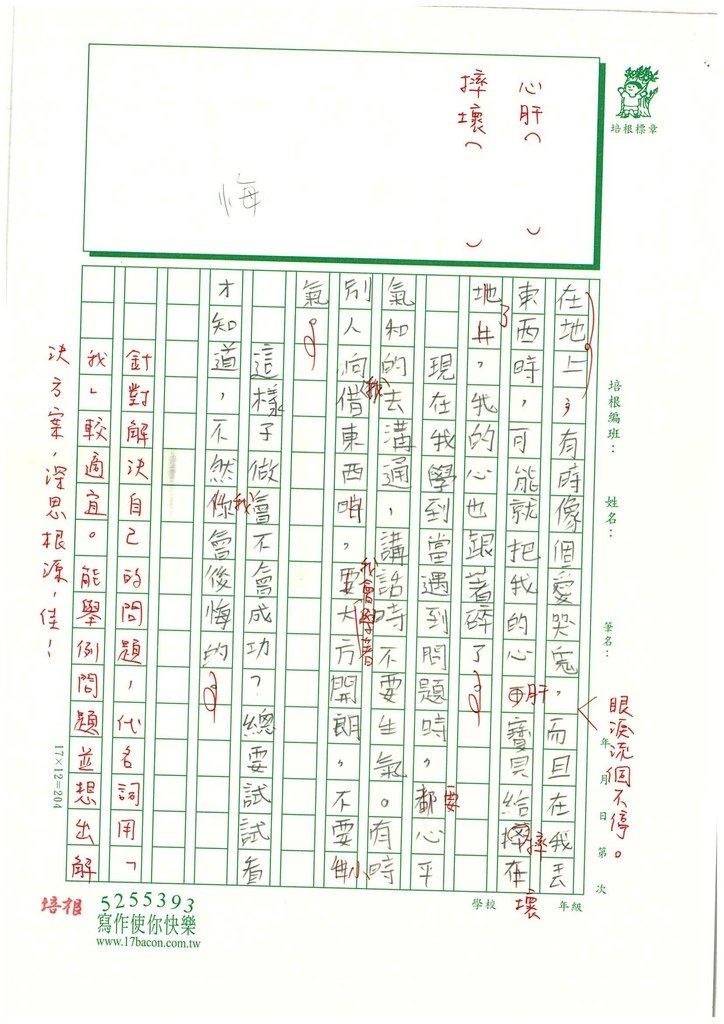 心肝（　　）
摔壞（　　）
悔
培根標章
培根編班：
姓名：
筆名：
年　月　日第　次
在地上，有時像個愛哭鬼，而且在我丟
眼淚流個不停。
東西時，可能就把我的心肝寶貝給摔在
壞
地上，我的心也跟著碎了。
了
現在我學到當遇到問題時，都心平
要
氣和的去溝通，講話時不要生氣。有時
我會學著
別人向借東西時，要大方開朗，不要小
我
氣。
這樣子做會不會成功？總要試試看
才知道，不然你會後悔的。
我
針對解決自己的問題，代名詞用「
我」較適宜。能舉例問題並想出解
決方案，深思根源，佳！
17×12=204
學校
年級
培根
5255393
寫作使你快樂
www.17bacon.com.tw